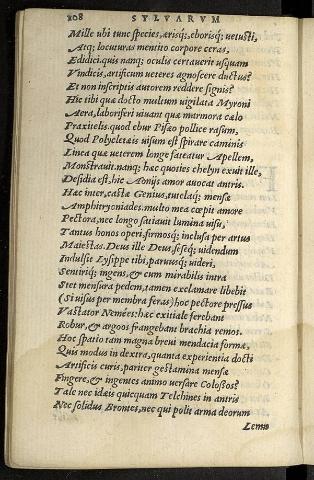 108 SYLVARVM
Mille ubi tunc species, ærisq;, eborisq; uetusti,
Atq; locuturas mentito corpore ceras,
Edidici. quis nanq; oculis certauerit usquam
Vindicis, artificum ueteres agnoscere ductus?
Et non inscriptis autorem reddere signis?
Hic tibi quæ docto multum uigilata Myroni
Aera, laboriferi uiuant quæ marmora cælo
Praxitelis. quod ebur Pisæo pollice rasum,
Quod Polycletæis uisum est spirare caminis
Linea quæ ueterem longe fateatur Apellem,
Monstrauit. nanq; hæc quoties chelyn exuit ille,
Desidia est, hic Aonijs amor auocat antris.
Hæc inter, castæ Genius, tutelaq; mensæ
Amphitryoniades. multo mea cœpit amore
Pectora, nec longo satiauit lumina uisu,
Tantus honos operi, firmosq; inclusa per artus
Maiestas. Deus ille Deus, seseq; uidendum
Indulsit Lysippe tibi, paruusq; uideri,
Sentiriq; ingens, & cum mirabilis intra
Stet mensura pedem, tamen exclamare libebit
(Si uisus per membra feras) hoc pectore pressus
Vastator Nemees: hæc exitiale ferebant
Robur, & argoos frangebant brachia remos.
Hoc spatio tam magna breui mendacia formæ,
Quis modus in dextra, quanta experientia docti
Artificis curis, pariter gestamina mensæ
Fingere, & ingentes animo uersare Colossos?
Tale nec idæis quicquam Telchines in antris
Nec solidus Brontes, nec qui polit arma deorum
Lemn